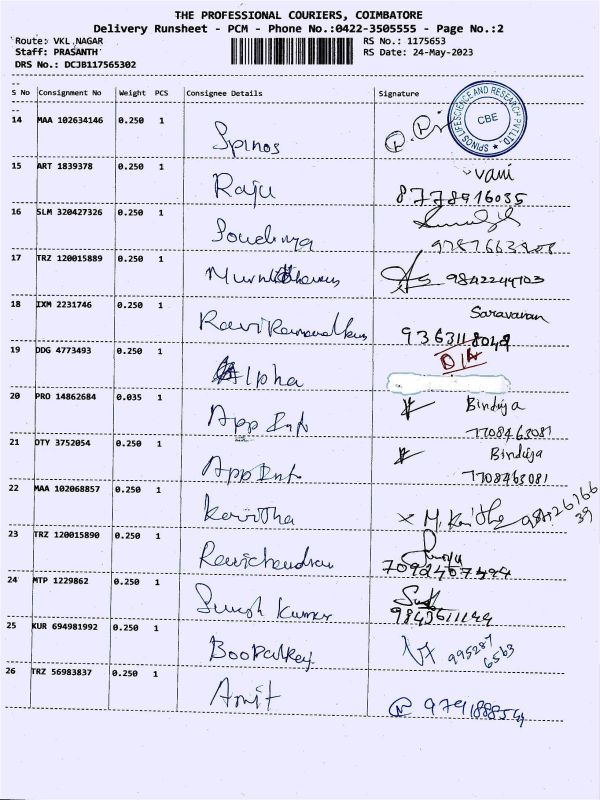 THE PROFESSIONAL COURIERS, COIMBATORE
Delivery Runsheet - PCM - Phone No.:0422-3505555 - Page No.:2
Route: VKL NAGAR RS No.: 1175653
Staff: PRASANTH RS Date: 24-May-2023
DRS No.: DCJB117565302
S No Consignment No Weight PCS Consignee Details Signature
SPINOS LIFESCIENCE AND RESEARCH PVT LTD CBE
14 MAA 102634146 0.250 1 Spinos
15 ART 1839378 0.250 1 Raju vani
8778916035
16 SLM 320427326 0.250 1
17 TRZ 120015889 0.250 1 9842244703
18 IXM 2231746 0.250 1 Saravanan
9363118049
19 DDG 4773493 0.250 1 Alpha
20 PRO 14862684 0.035 1 App Int Binduja
7708463081
21 OTY 3752054 0.250 1 App Int Binduja
7708463081
22 MAA 102068857 0.250 1 Kavitha
23 TRZ 120015890 0.250 1 Ravichandran
24 MTP 1229862 0.250 1 Suresh Kumar
25 KUR 694981992 0.250 1 995287
6563
26 TRZ 56983837 0.250 1 Amit